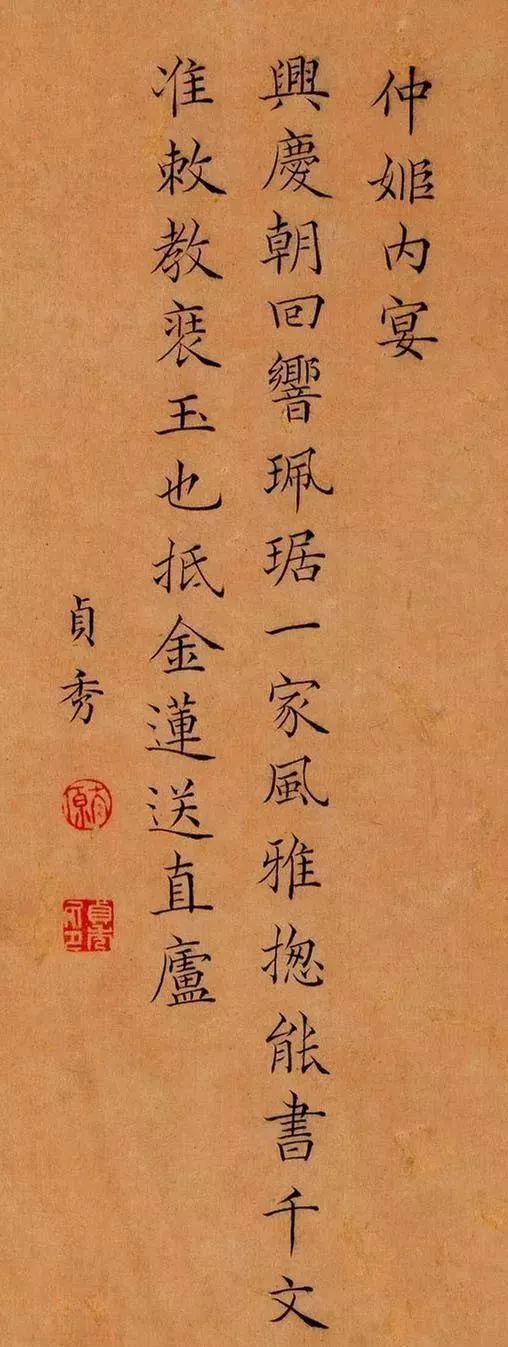 仲姬内宴
興慶朝回響珮琚一家風雅揔能書千文
准敕教袠玉也抵金蓮送直廬
貞秀